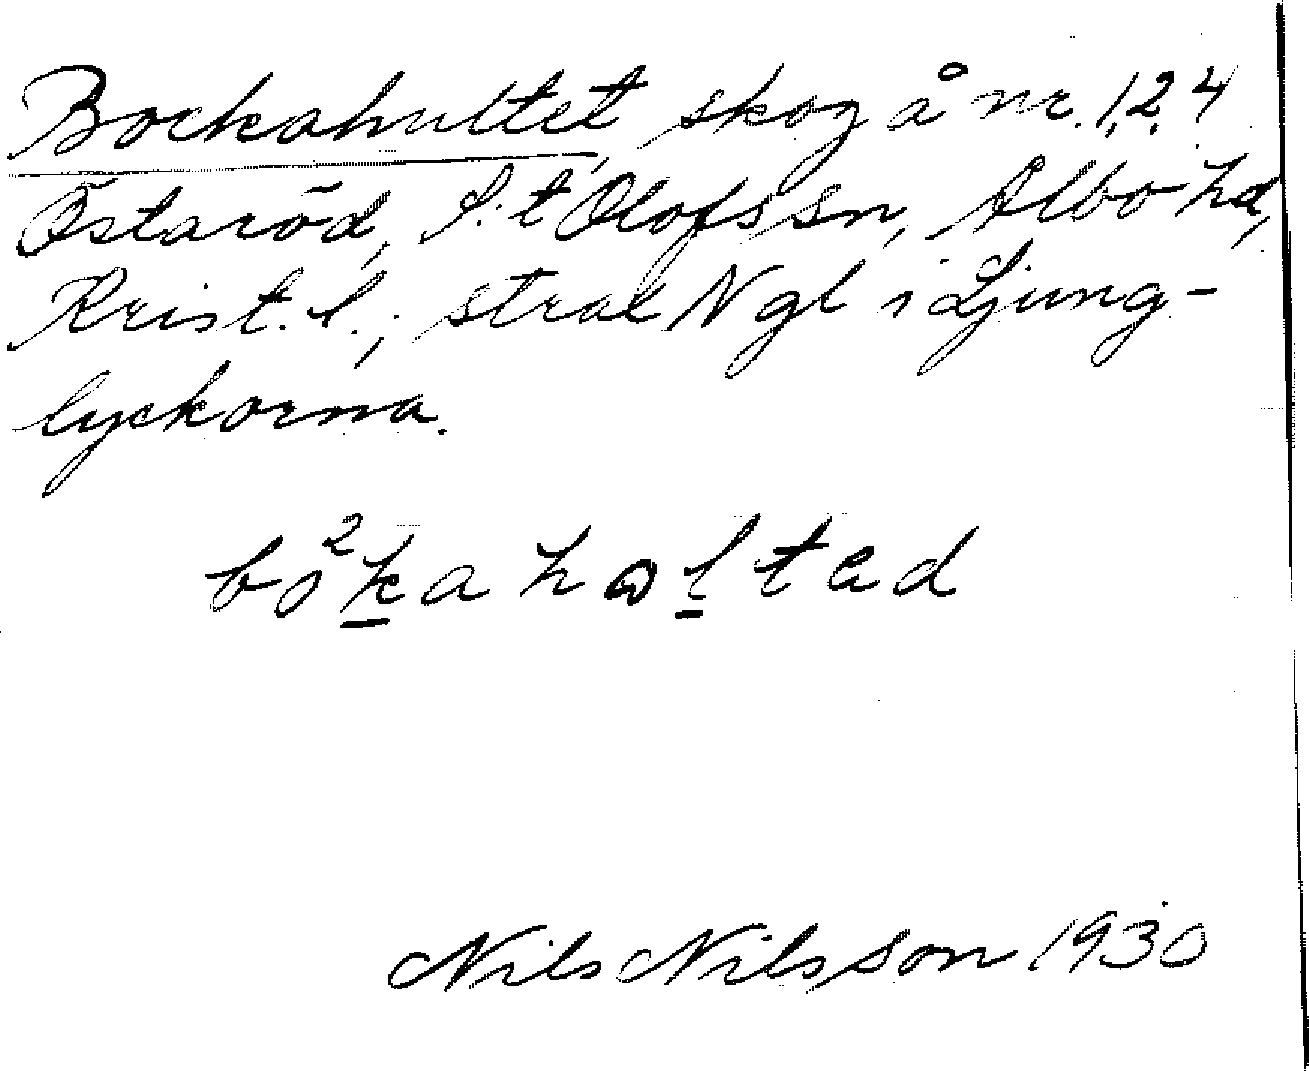 Bockahultet, skog å nr. 1, 2, 4
Östaröd, S:t Olofs sn, Albo hd,
Krist. l.; strax N gl i Ljung-
lyckorna.
bo²kahɷltad
Nils Nilsson 1930